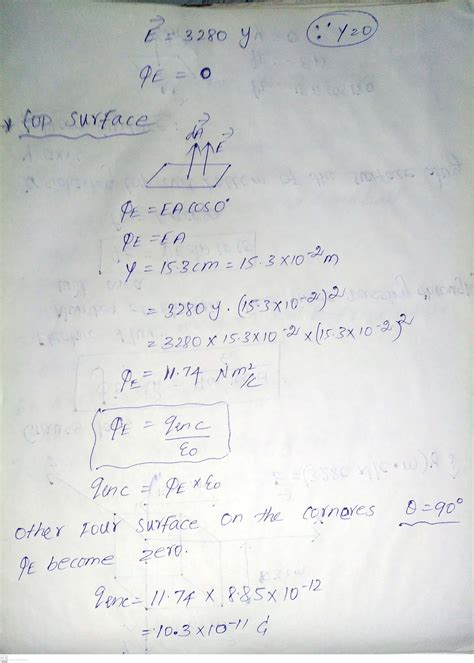 E⃗ = 3280 y (∵ y=0)
φE = 0
* top surface
dA⃗ E⃗
φE = EA cos0°
φE = EA
y = 15.3cm = 15.3×10⁻²m
= 3280 y · (15.3×10⁻²)²
= 3280 × 15.3×10⁻² × (15.3×10⁻²)²
φE = 11.74 Nm²/c
φE = qenc/ε0
qenc = φE × ε0
other four surface on the cornores θ = 90°
φE become zero.
qenc = 11.74 × 8.85 × 10⁻¹²
= 10.3×10⁻¹¹ C